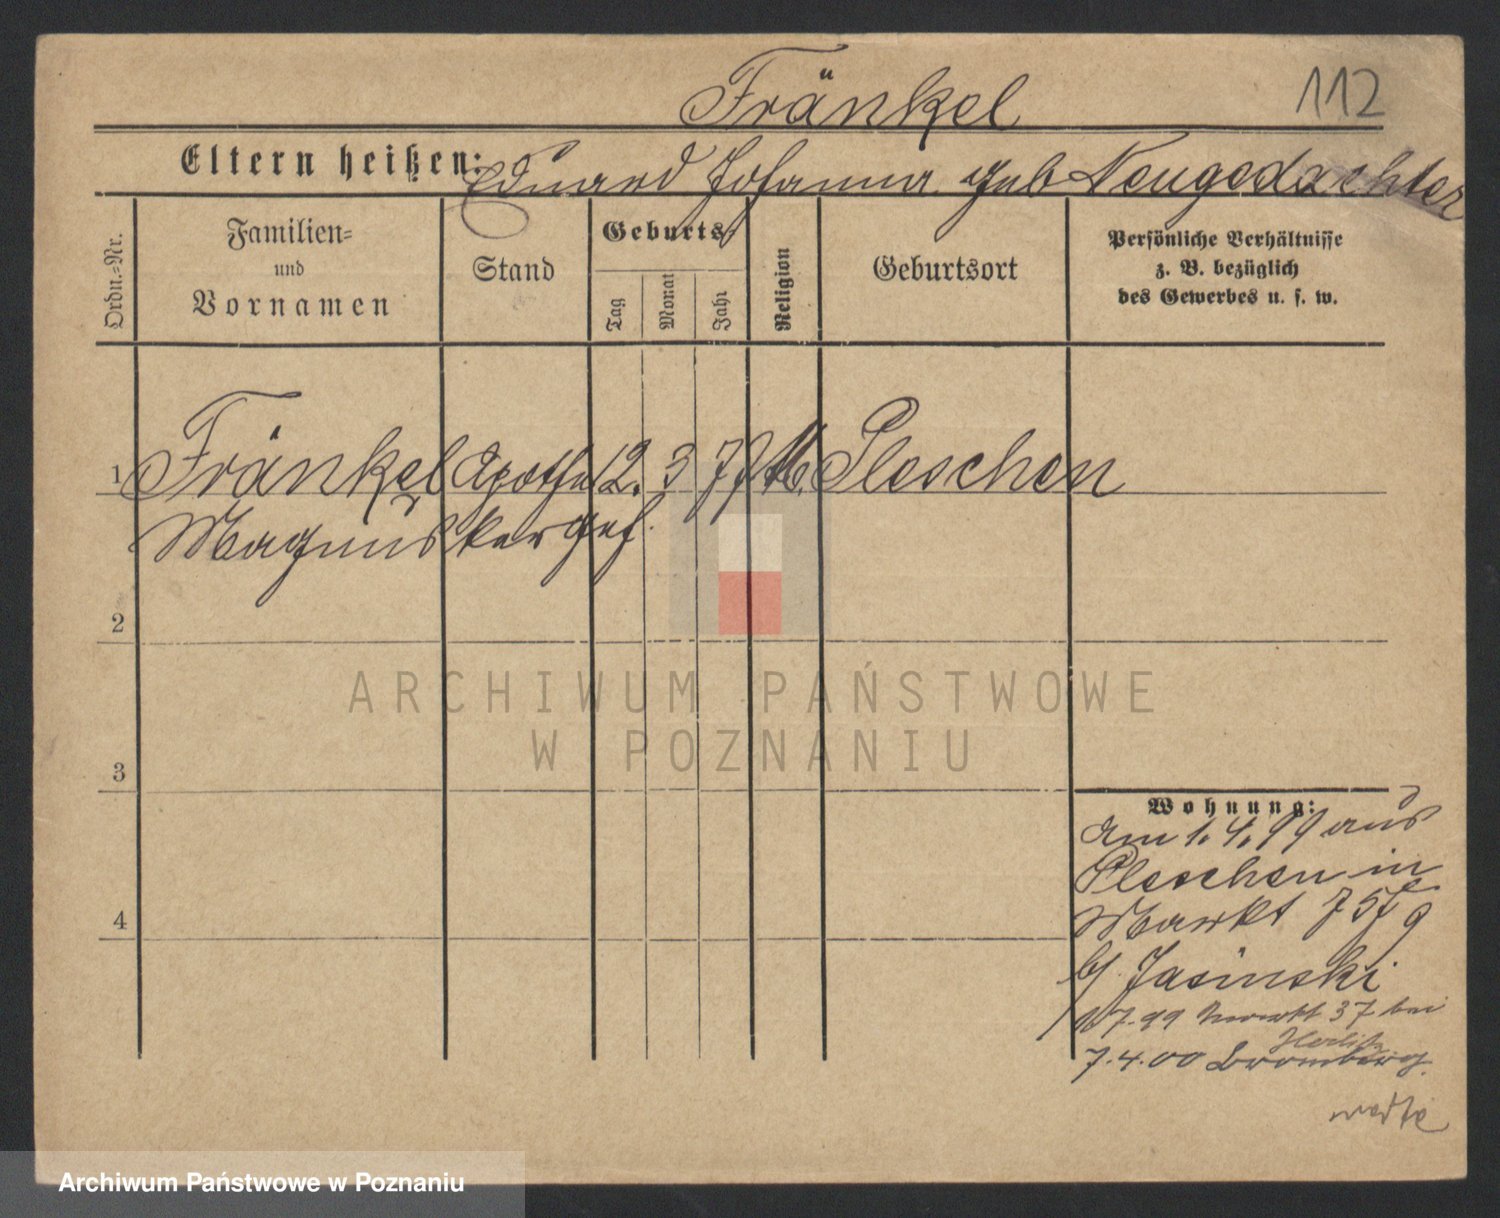 Fränkel
112
Eltern heißen: Eduard Johanna geb Neugedachter
Ordn.=Nr.
Familien=
und
Vornamen
Stand
Geburts=
Tag
Monat
Jahr
Religion
Geburtsort
Persönliche Verhältnisse
z. B. bezüglich
des Gewerbes u. s. w.
1 Fränkel Apothe 12. 3 77 M. Pleschen
Magnus ker geh.
2
ARCHIWUM PAŃSTWOWE
W POZNANIU
3
Wohnung:
Am 1.4.99 aus
Pleschen in
Markt
b/ Jasinski
7.99 Markt 37 bei
Herlitz
7.4.00 Bromberg.
4
Archiwum Państwowe w Poznaniu